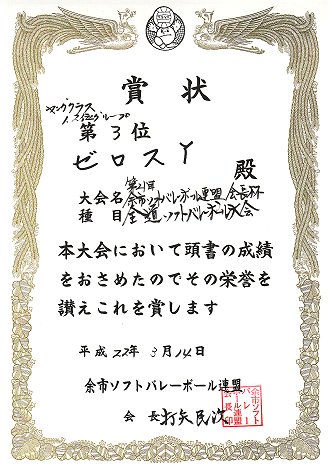 賞状
ヤングクラス
1位グループ
第3位
ゼロスY 殿
大会名 第21回余市ソフトバレーボール連盟会長杯
種目 全道ソフトバレーボール大会
本大会において頭書の成績
をおさめたのでその栄誉を
讃えこれを賞します
平成22年3月14日
余市ソフトバレーボール連盟
会長
余市ソフト
バレーボー
ル連盟
会長印